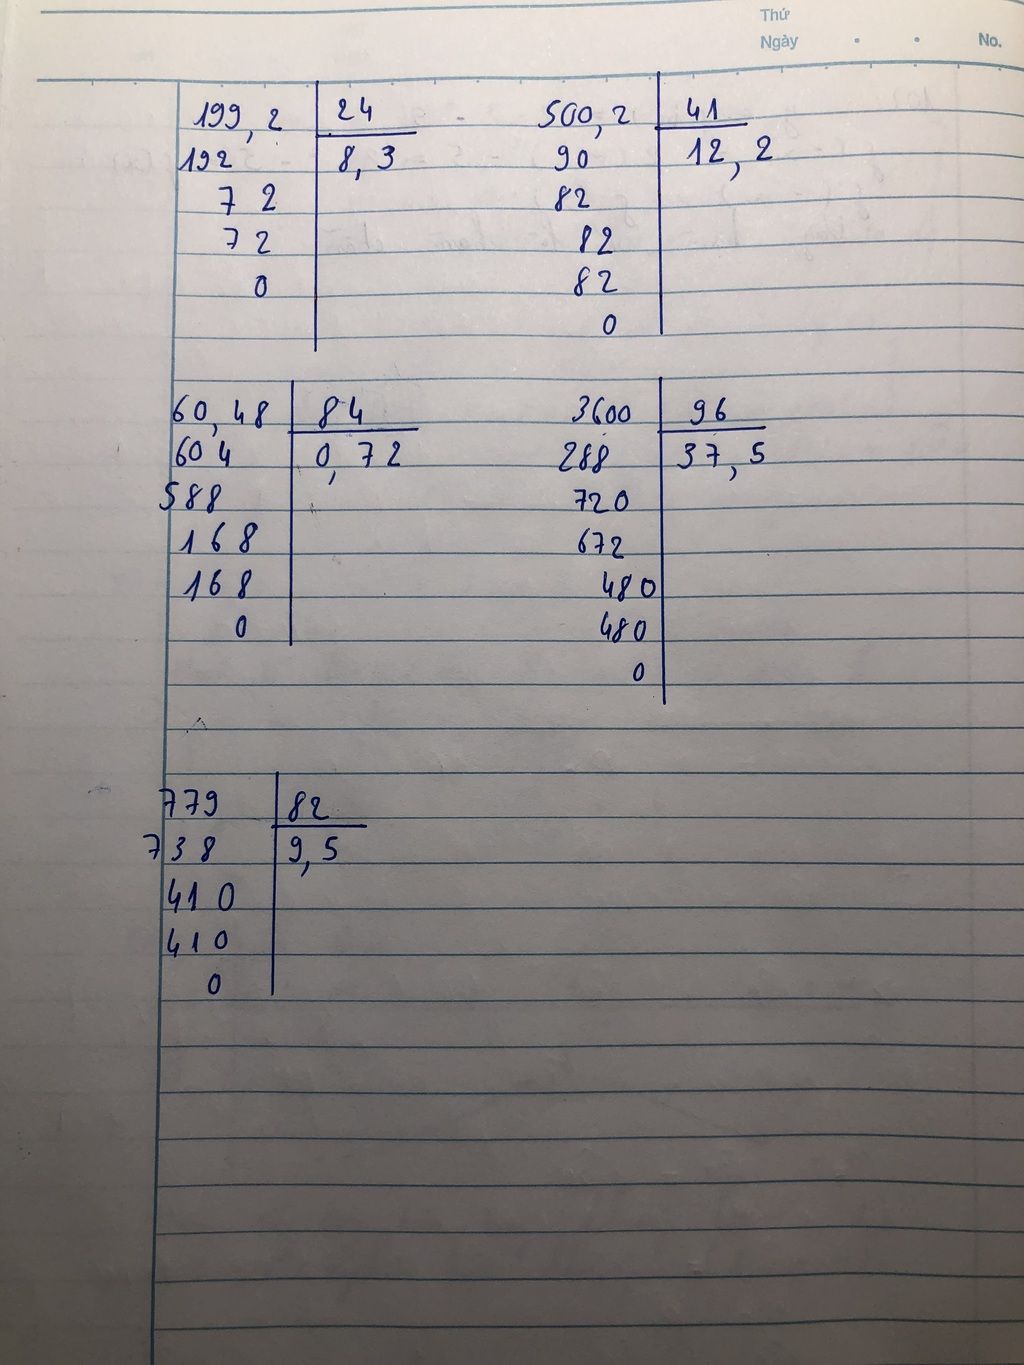 Thứ
Ngày . . No.
199,2 24
192 8,3
72
72
0
500,2 41
90 12,2
82
82
82
0
60,48 84
604 0,72
588
168
168
0
3600 96
288 37,5
720
672
480
480
0
779 82
738 9,5
410
410
0